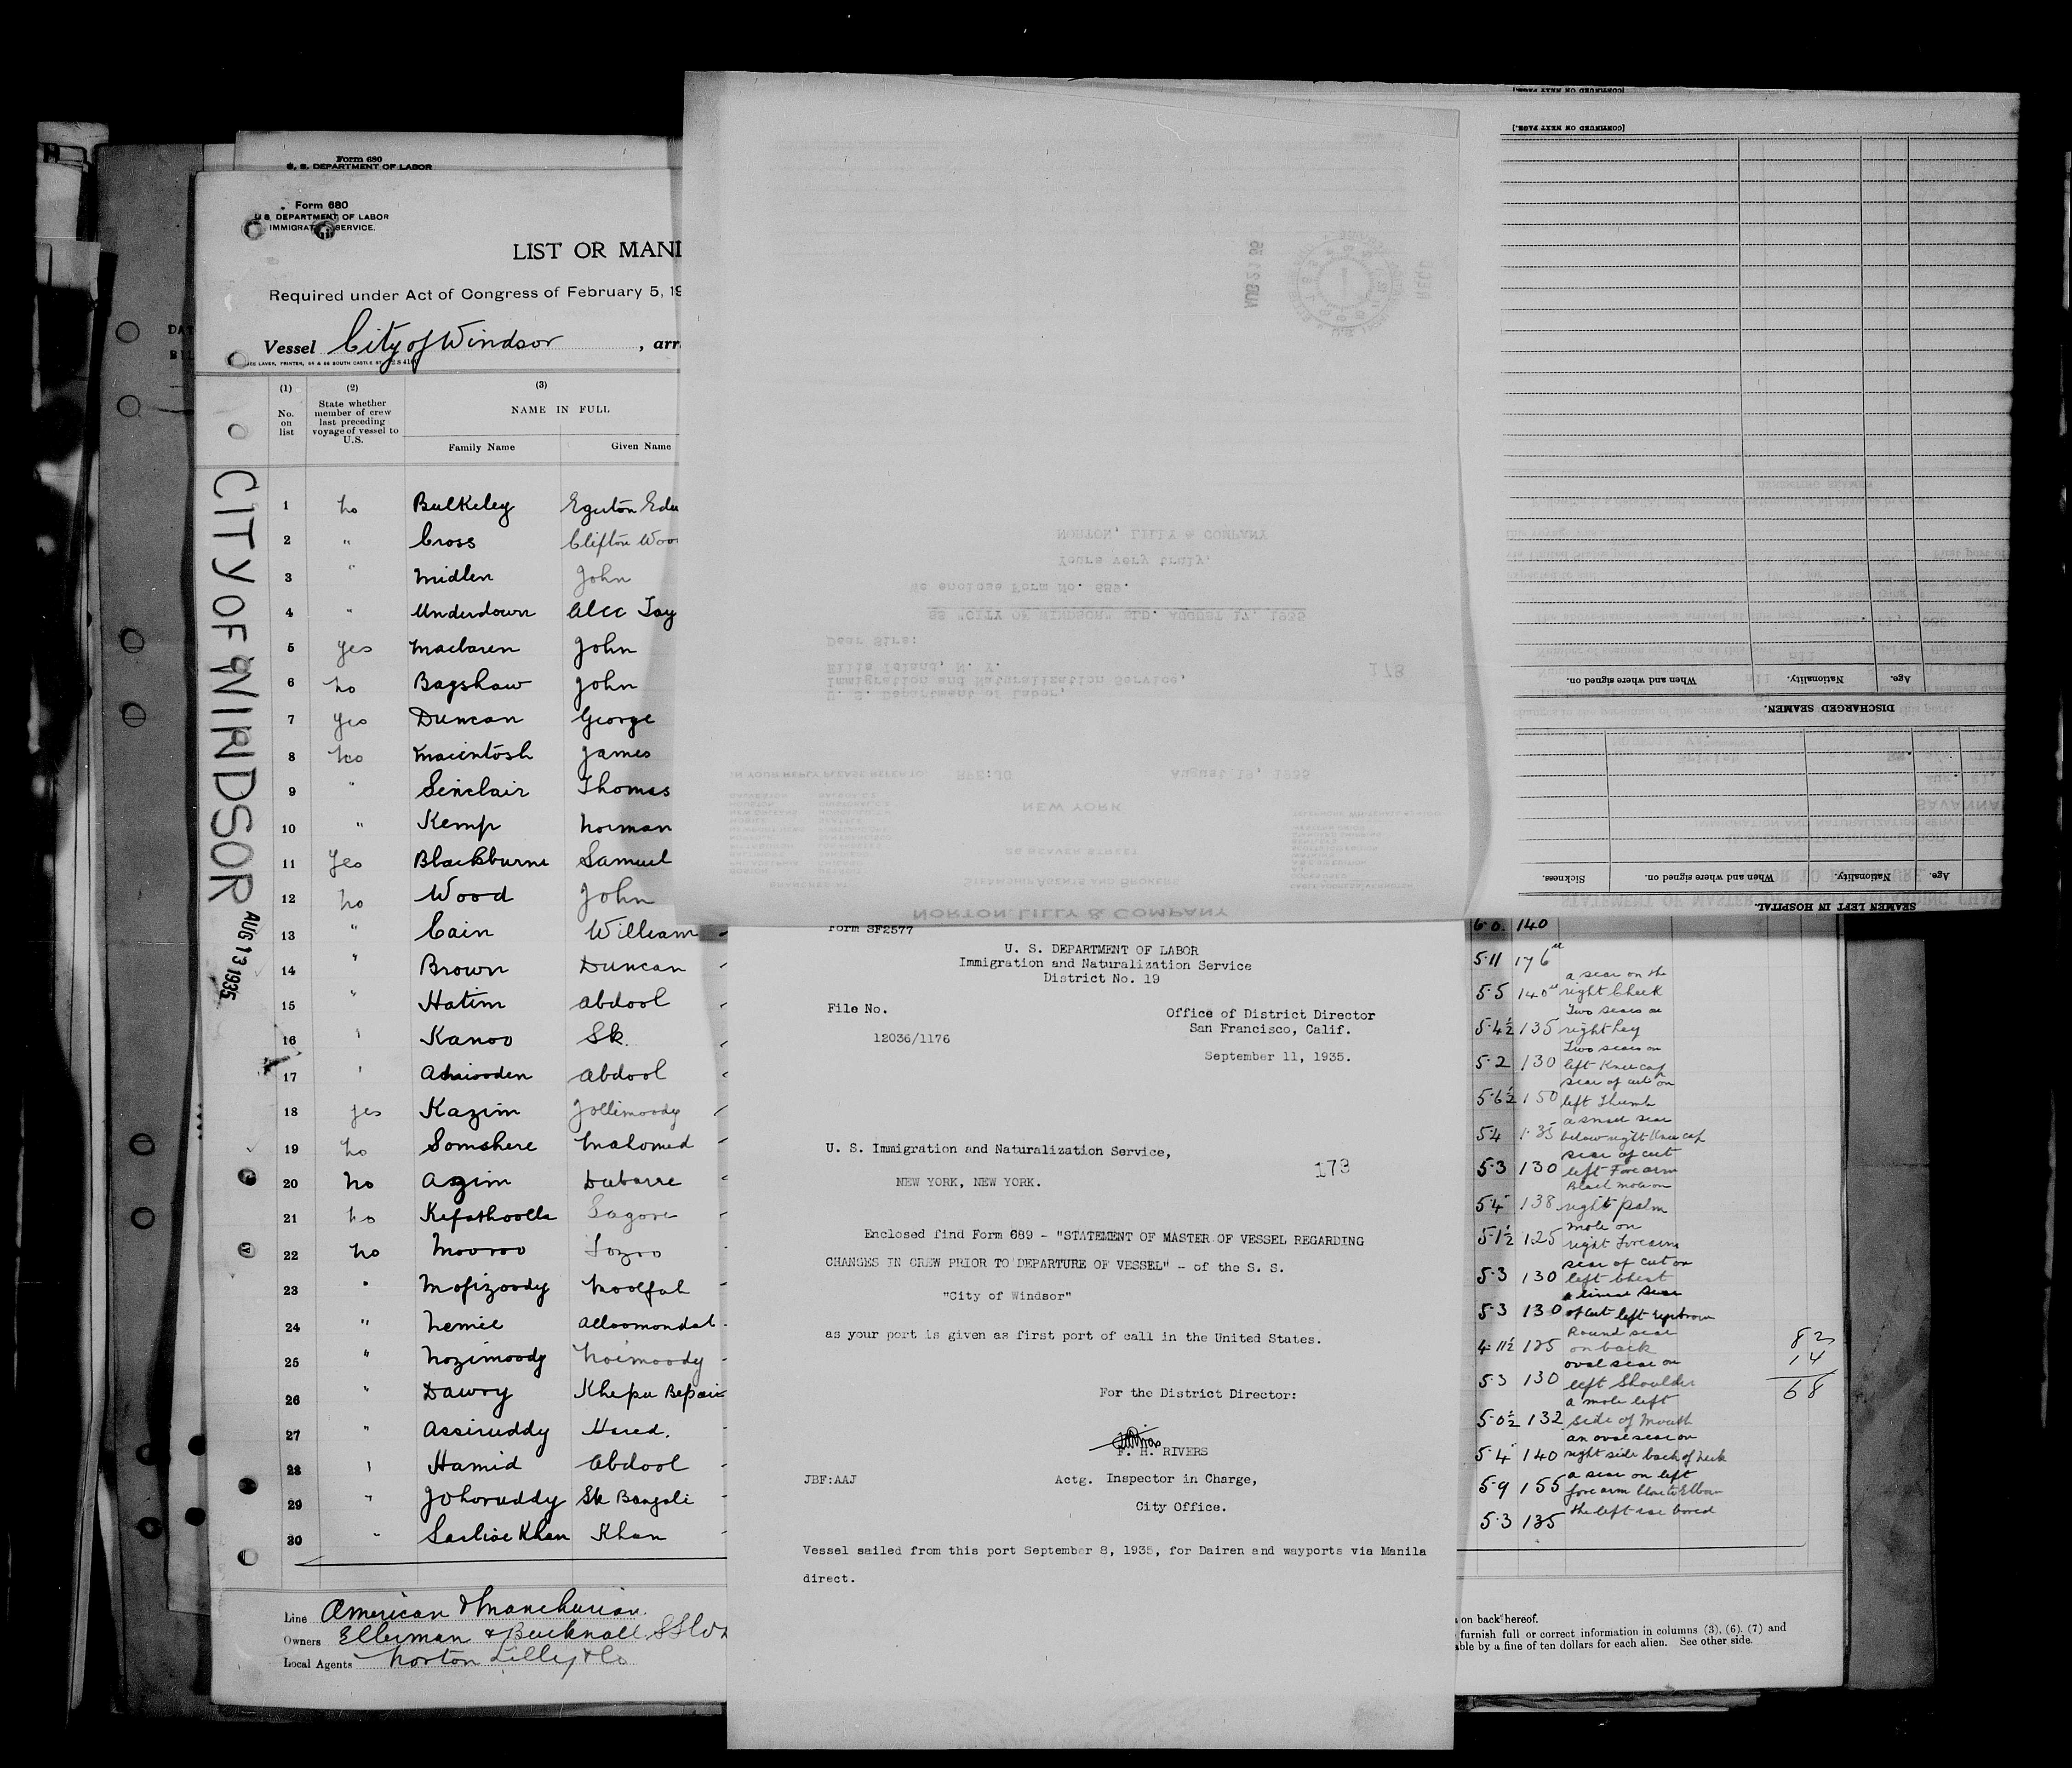 Form 680
U. S. DEPARTMENT OF LABOR
Form 680
U.S. DEPARTMENT OF LABOR
IMMIGRATION SERVICE.
LIST OR MANI
Required under Act of Congress of February 5, 19
Vessel City of Windsor , arr
(1) (2) (3)
No. on list
State whether member of crew last preceding voyage of vessel to U.S.
NAME IN FULL
Family Name Given Name
CITY OF WINDSOR
AUG 13 1935
1 no Bulkeley Egerton Edw
2 " Cross Clifton Woo
3 " Midlen John
4 " Underdown Alec Jay
5 yes Maclaren John
6 no Bagshaw John
7 yes Duncan George
8 no Macintosh James
9 " Sinclair Thomas
10 " Kemp Norman
11 Yes Blackburne Samuel
12 no Wood John
13 " Cain William
14 " Brown Duncan
15 " Hatim Abdool
16 " Kanoo Sk.
17 " Abdool
18 yes Kazim Jollimoody
19 no Somshere Mahomed
20 no Azim Dubarre
21 no Kefathoolla
22 no Mooroo
23 " Mofizoody
24 " Alloomondal
25 " Nozimoody Noimoody
26 " Dawry Khepu Bepari
27 " Assiruddy Hared.
28 " Hamid Abdool
29 " Johoruddy Sk Bangali
30 " Khan
Line American & Manchurian.
Owners Ellerman & Bucknall
Local Agents Norton Lilly & Co
[CONTINUED ON NEXT PAGE.]
[CONTINUED ON NEXT PAGE.]
When and where signed on. Nationality. Age.
DISCHARGED SEAMEN.
Sickness. When and where signed on. Nationality. Age.
SEAMEN LEFT IN HOSPITAL.
AUG 21 35
NORTON, LILLY & COMPANY
Yours very truly,
We enclose Form No. 689.
SS "CITY OF WINDSOR" SLD. AUGUST 17, 1935
Dear Sirs:
Ellis Island, N. Y. 173
Immigration and Naturalization Service,
U. S. Department of Labor,
IN YOUR REPLY PLEASE REFER TO: August 19, 1935
NEW YORK
26 BEAVER STREET
STEAMSHIP AGENTS AND BROKERS
NORTON, LILLY & COMPANY
Form SF2577
U. S. DEPARTMENT OF LABOR
Immigration and Naturalization Service
District No. 19
File No.
12036/1176
Office of District Director
San Francisco, Calif.
September 11, 1935.
U. S. Immigration and Naturalization Service,
NEW YORK, NEW YORK.
173
Enclosed find Form 689 - "STATEMENT OF MASTER OF VESSEL REGARDING
CHANGES IN CREW PRIOR TO DEPARTURE OF VESSEL" - of the S. S.
"City of Windsor"
as your port is given as first port of call in the United States.
For the District Director:
F. H. RIVERS
JBF:AAJ
Actg. Inspector in Charge,
City Office.
Vessel sailed from this port September 8, 1935, for Dairen and wayports via Manila
direct.
6.0. 140
5.11 176
5.5 140 a scar on the right cheek
5.4½ 135 Two scars on right leg
5.2 130 Two scars on left Knee cap
5.6½ 150 scar of cut on left thumb
5.4 135 a small scar below right Knee cap
5.3 130 scar of cut left Forearm
5.4 138 Black mole on right palm
5.1½ 125 mole on right Forearm
5.3 130 scar of cut on left chest
5.3 130 a linear scar of cut left eyebrow
4.11½ 125 Round scar on back
5.3 130 oval scar on left Shoulder
5.0½ 132 a mole left side of mouth
5.4 140 an oval scar on right side back of neck
5.9 155 a scar on left forearm close to Elbow
5.3 135 the left ear bored
82
14
68
on back hereof.
furnish full or correct information in columns (3), (6), (7) and
able by a fine of ten dollars for each alien. See other side.